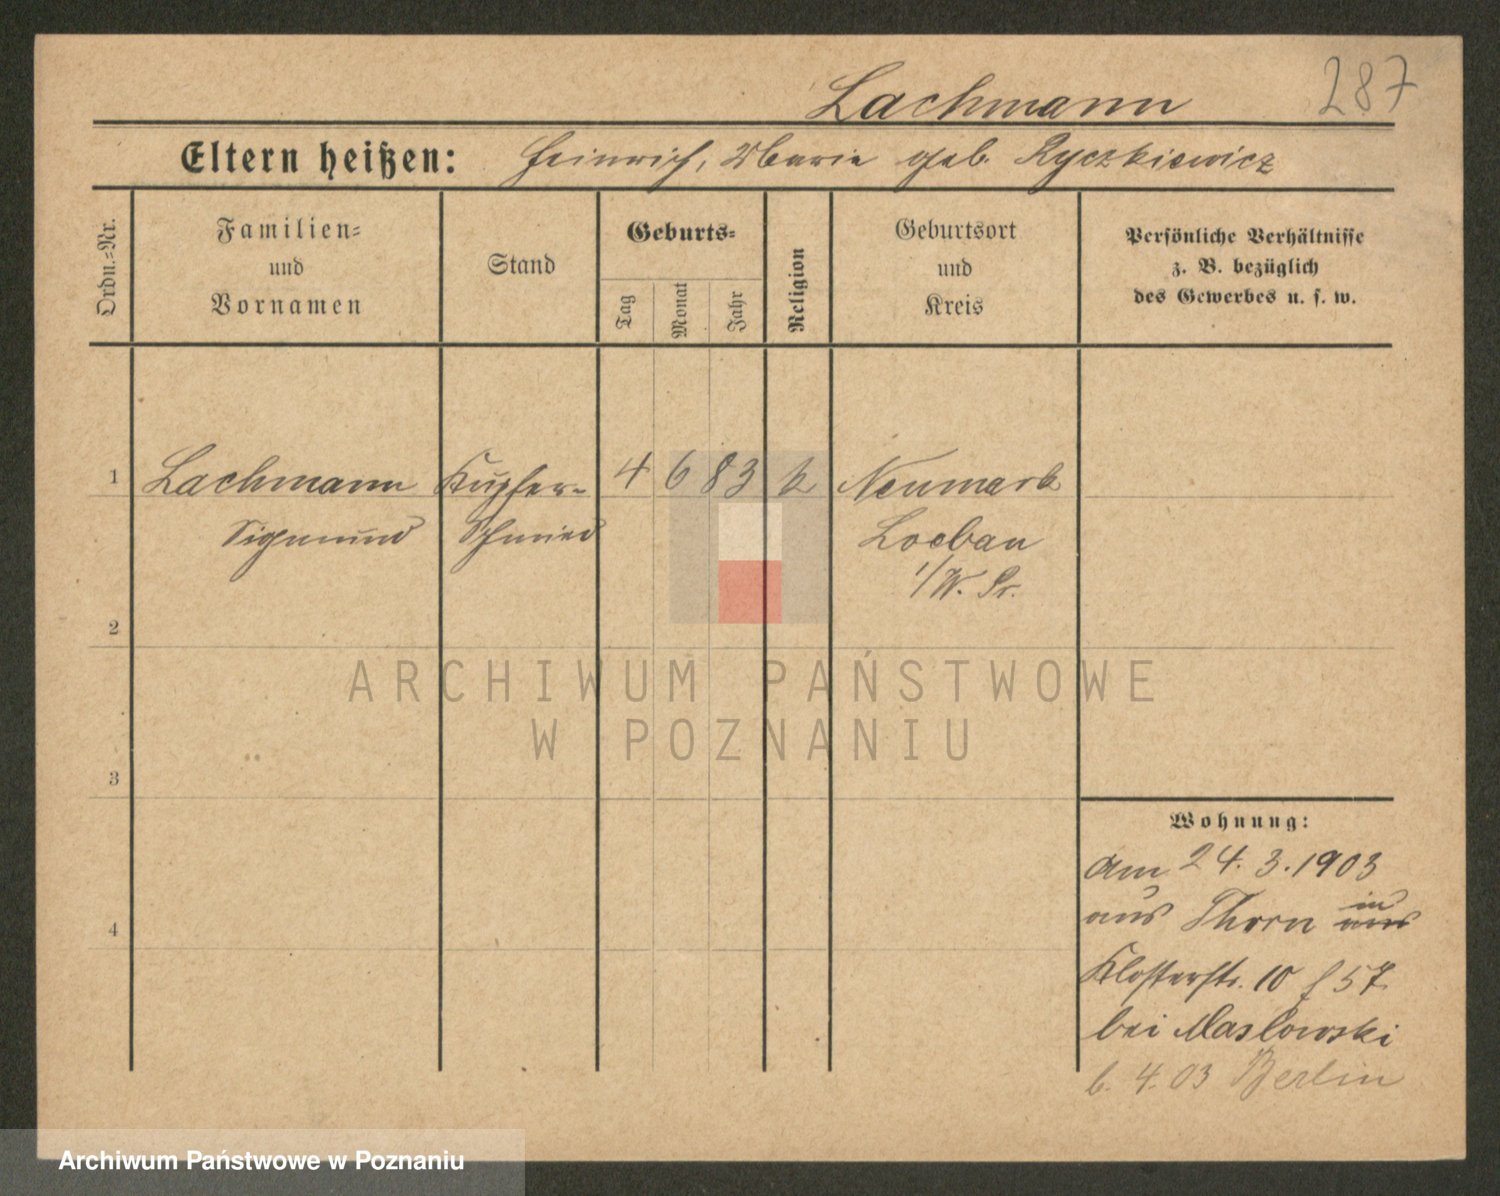 287
Lachmann
Eltern heißen: Heinrich, Marie geb. Ryczkiewicz
Ordn.-Nr.
Familien-
und
Vornamen
Stand
Geburts-
Tag
Monat
Jahr
Religion
Geburtsort
und
Kreis
Persönliche Verhältnisse
z. B. bezüglich
des Gewerbes u. s. w.
1 Lachmann Kupfer- 4 6 83 k Neumark
Sigmund Schmied Loebau
i/W. Pr.
2
3
4
Wohnung:
am 24.3.1903
aus Thorn in aus
Klosterstr. 10 f 57
bei Maslowski
6. 4. 03 Berlin
ARCHIWUM PAŃSTWOWE
W POZNANIU
Archiwum Państwowe w Poznaniu